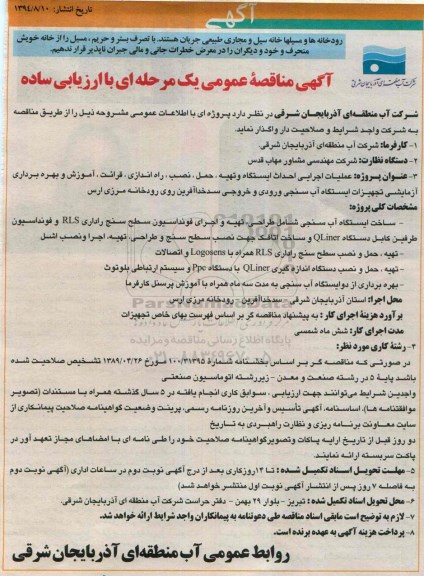 تاریخ انتشار: ۱۳۹۴/۸/۱۰
آگهی
رودخانه ها و مسیلها خانه سیل و مجاری طبیعی جریان هستند، با تصرف بستر و حریم، مسیل را از خانه خویش
منحرف و خود و دیگران را در معرض خطرات جانی و مالی جبران ناپذیر قرار ندهیم.
شرکت آب منطقه‌ای آذربایجان شرقی
آگهی مناقصهٔ عمومی یک مرحله ای با ارزیابی ساده
شرکت آب منطقه‌ای آذربایجان شرقی در نظر دارد پروژه ای با اطلاعات عمومی مشروحه ذیل را از طریق مناقصه
به شرکت واجد شرایط و صلاحیت دار واگذار نماید.
۱- کارفرما: شرکت آب منطقه‌ای آذربایجان شرقی.
۲- دستگاه نظارت: شرکت مهندسی مشاور مهاب قدس
۳- عنوان پروژه: عملیات اجرایی احداث ایستگاه وتهیه، حمل، نصب، راه اندازی، قرائت، آموزش و بهره برداری
آزمایشی تجهیزات ایستگاه آب سنجی ورودی و خروجی سدخداآفرین روی رودخانه مرزی ارس
مشخصات کلی پروژه:
- ساخت ایستگاه آب سنجی شامل طراحی، تهیه و اجرای فونداسیون سطح سنج راداری RLS و فونداسیون
طرفین کابل دستگاه QLiner و ساخت اتاقک جهت نصب سطح سنج و طراحی، تهیه، اجرا ونصب اشل
- تهیه، حمل و نصب سطح سنج راداری RLS همراه با Logosens و اتصالات
- تهیه، حمل و نصب دستگاه اندازه گیری QLiner با دستگاه Ppc و سیستم ارتباطی بلوتوث
- بهره برداری از دوایستگاه آب سنجی به مدت سه ماه همراه با آموزش پرسنل کارفرما
محل اجرا: استان آذربایجان شرقی - سدخداآفرین - رودخانه مرزی ارس
برآورد هزینهٔ اجرای کار: به پیشنهاد مناقصه گر بر اساس فهرست بهای خاص تجهیزات
مدت اجرای کار: شش ماه شمسی
۴- رشتهٔ کاری مورد نظر:
در صورتی که مناقصه گر بر اساس بخشنامه شمارهٔ ۱۰۰/۳۱۳۹۵ مورخ ۱۳۸۹/۰۳/۲۶ تشخیص صلاحیت شده
باشد پایهٔ ۵ در رشته صنعت و معدن - زیررشته اتوماسیون صنعتی
واجدین شرایط می‌توانند جهت ارزیابی، سوابق کاری انجام یافته در ۵ سال گذشته همراه با مستندات (تصویر
موافقتنامه ها)، اساسنامه، آگهی تأسیس و آخرین روزنامه رسمی، پرینت وضعیت گواهینامه صلاحیت پیمانکاری از
سایت معاونت برنامه ریزی و نظارت راهبردی به تاریخ
دو روز قبل از تاریخ ارایه پاکات وتصویرگواهینامه صلاحیت خود را طی نامه ای با امضاهای مجاز تعهد آور در
پاکت سربسته ارائه نمایند.
۵- مهلت تحویل اسناد تکمیل شده: تا ۱۴روزکاری بعد از درج آگهی نوبت دوم در ساعات اداری (آگهی نوبت دوم
به فاصله ۷ روز پس از انتشار آگهی نوبت اول منتشر خواهد شد)
۶- محل تحویل اسناد تکمیل شده: تبریز - بلوار ۲۹ بهمن - دفتر حراست شرکت آب منطقه ای آذربایجان شرقی.
۷- لازم به توضیح است مابقی اسناد مناقصه طی دعوتنامه به پیمانکاران واجد شرایط ارائه خواهد شد.
۸- پرداخت هزینه آگهی به عهده برنده است.
روابط عمومی آب منطقه‌ای آذربایجان شرقی